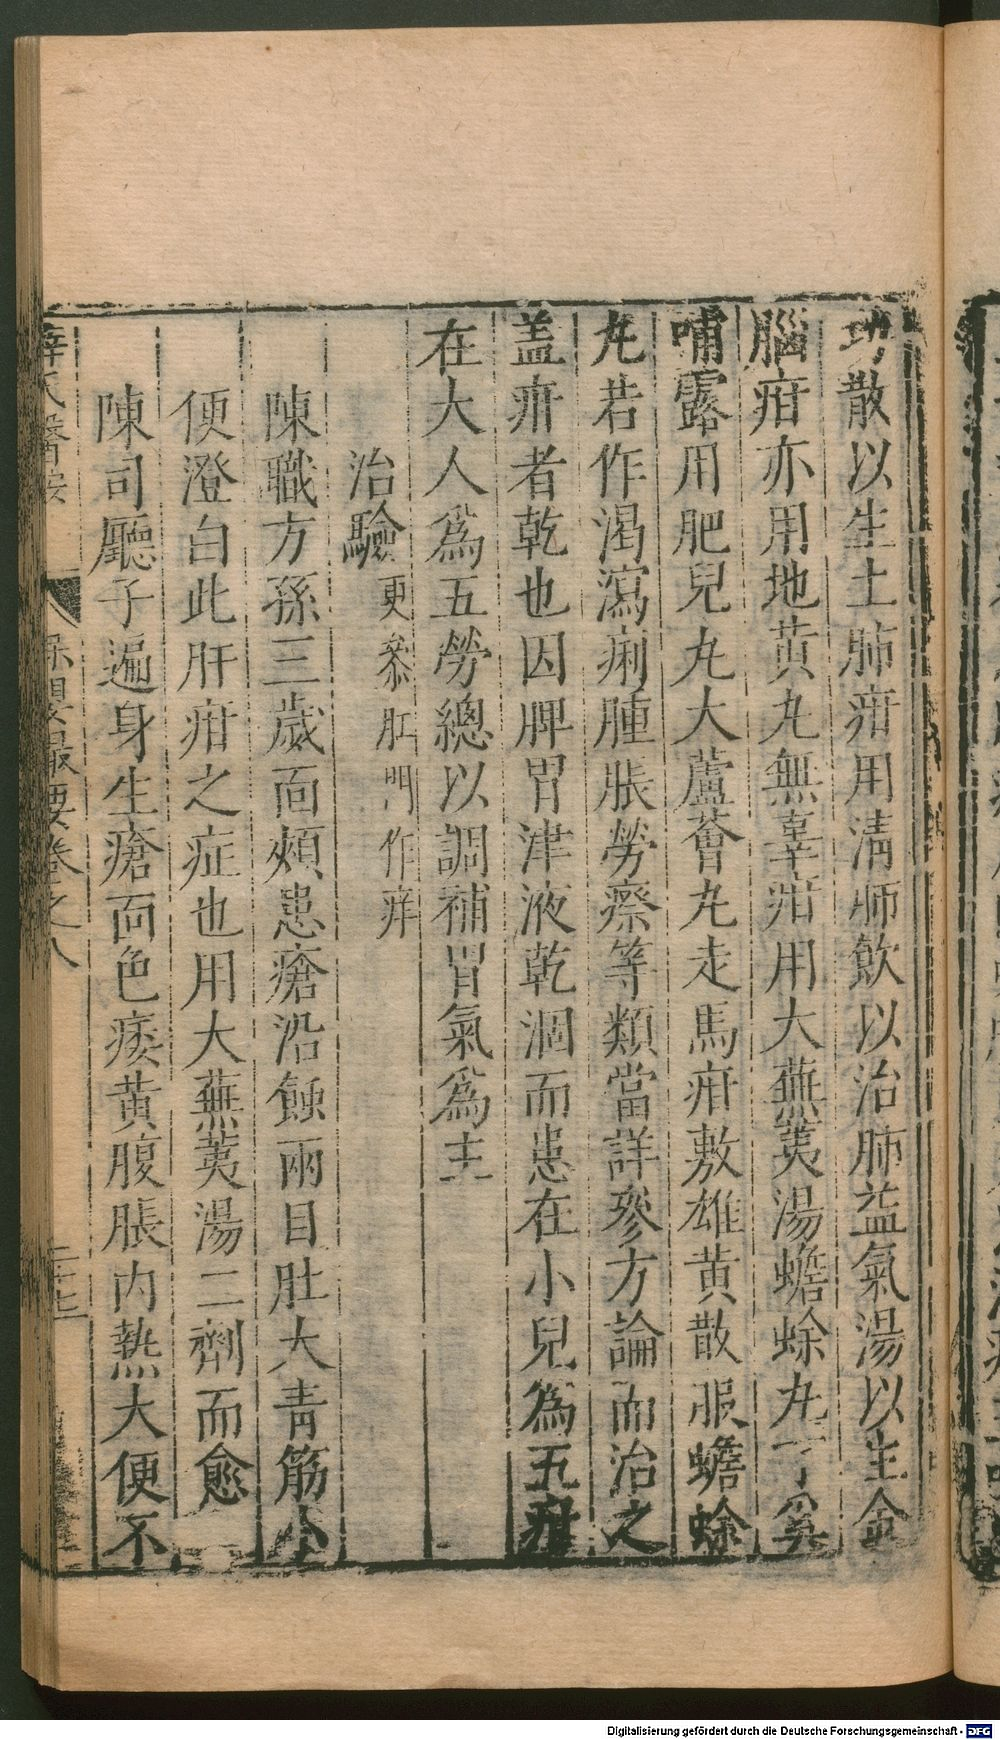 功散以生土肺疳用清肺飲以治肺益氣湯以生金
腦疳亦用地黃丸無辜疳用大蕪荑湯蟾蜍丸丁奚
哺露用肥兒丸大蘆薈丸走馬疳敷雄黃散服蟾蜍
丸若作渴瀉痢腫脹勞瘵等類當詳參方論而治之
盖疳者乾也因脾胃津液乾涸而患在小兒為五疳
在大人為五勞總以調補胃氣為主
治驗 更叅肛門作痒
陳職方孫三歲面頰患瘡沿蝕兩目肚大青筋小
便澄白此肝疳之症也用大蕪荑湯二劑而愈
陳司廳子遍身生瘡面色痿黃腹脹内熱大便不
薛氏醫按 保嬰撮要卷之八 二十七
Digitalisierung gefördert durch die Deutsche Forschungsgemeinschaft - DFG